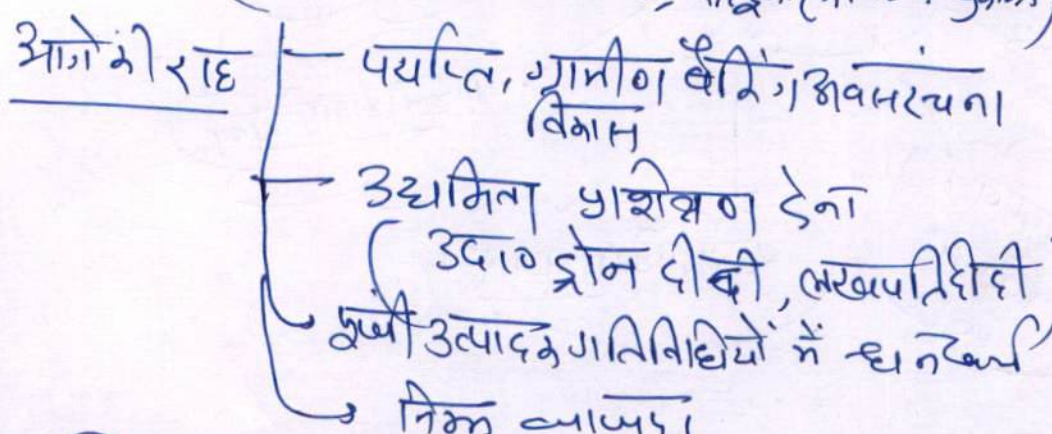 आगे की राह
पर्याप्त, ग्रामीण बैंकिंग, अवसंरचना
विकास
उद्यमिता प्रशिक्षण देना
उदा० ड्रोन दीदी, लखपति दीदी
पूंजी उत्पादक गतिविधियों में धन खर्च
निम्न ब्याज दर